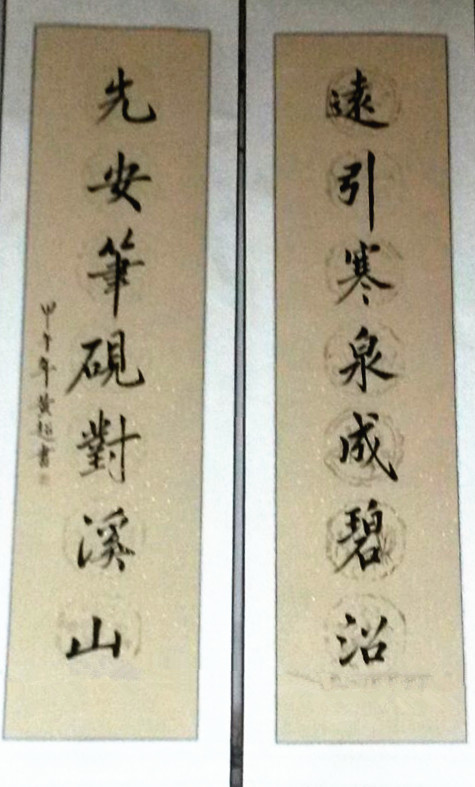 遠引寒泉成碧沼
先安筆硯對溪山
甲午年黄超書